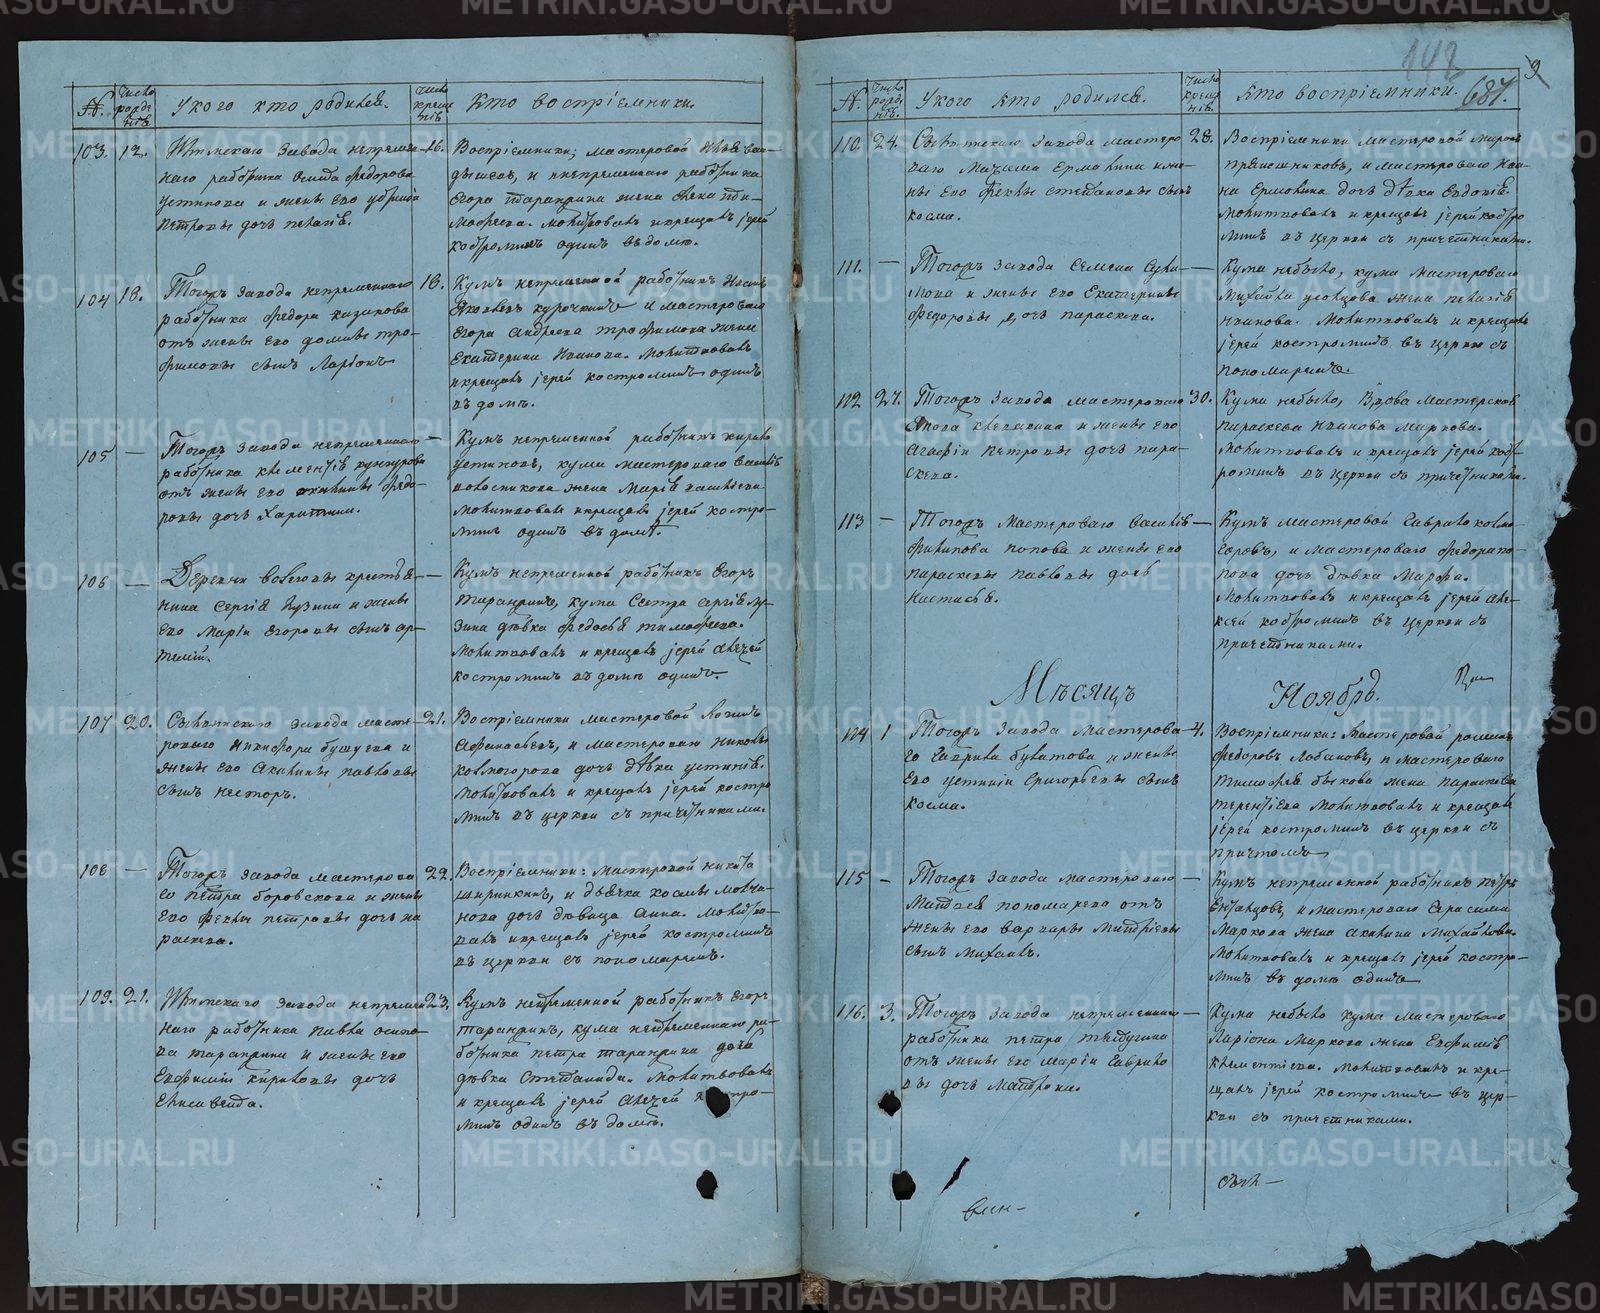 №.
Число рожденія.
У кого кто родился.
Число крещенія.
Кто воспріемники.
103. 12.
завода непремен-
наго работника Осипа Федорова
Устинова и жены его
Петровы дочь Пелагія.
16.
Воспріемники; мастеровой
и непременнаго работника
Егора Тарандина жена
Молитвовалъ и крещалъ іерей
Костроминъ одинъ въ домѣ.
104 18.
Тогожъ завода непременнаго
работника Федора Казакова
отъ жены его Домны Тро-
фимовы сынъ Ларіонъ
18.
Кумъ непременной работникъ Иванъ
Яковлевъ Курочкинъ и мастероваго
Егора Андреева Трофимова жена
Екатерина Иванова. Молитвовалъ
и крещалъ іерей Костроминъ одинъ
въ домѣ.
105 —
Тогожъ завода непременнаго
работника Климентія
отъ жены его Акилины Федо-
ровы дочь Харитина.
—
Кумъ непременной работникъ Кирило
Устиновъ, кума мастероваго Василія
жена Марія
Молитвовалъ и крещалъ іерей Костро-
минъ одинъ въ домѣ.
106 —
Деревни крестья-
нина Сергія Лузина и жены
его Маріи Егоровы сынъ Ар-
темій.
—
Кумъ непременной работникъ Егоръ
Тарандинъ, кума сестра Сергія Лу-
зина дѣвка Федосья Тимофеева.
Молитвовалъ и крещалъ іерей Алексѣй
Костроминъ въ домѣ одинъ.
107 20.
завода масте-
роваго Никифора Бушуева и
жены его Акилины Павловы
сынъ Несторъ.
21.
Воспріемники мастеровой
и мастероваго
Колмогорова дочь дѣвка Устинія.
Молитвовалъ и крещалъ іерей Костро
минъ въ церкви съ причетниками.
108 —
Тогожъ завода мастерова
го Петра Боровскова и жены
его Феклы Петровы дочь Па
раскева.
22.
Воспріемники: мастеровой Никита
Ширинкинъ, и дьячка Космы Молча-
нова дочь дѣвица Анна. Молитво-
валъ и крещалъ іерей Костроминъ
въ церкви съ пономаремъ.
109. 21.
завода непремен
наго работника Павла Осипо-
ва Тарандина и жены его
Евфиміи Кириловы дочь
Елисавета.
23.
Кумъ непременной работникъ Егоръ
Тарандинъ, кума непременнаго ра-
ботника Петра Тарандина дочь
дѣвка Степанида. Молитвовалъ
и крещалъ іерей Алексѣй Костро-
минъ одинъ въ домѣ.
148
687.
№.
Число рожденія.
У кого кто родился.
Число крещенія.
Кто воспріемники.
110. 24.
завода мастеро
ваго Ермолина и же-
ны его Феклы Степановы сынъ
Косма.
28.
Воспріемники мастеровой Миронъ
и мастероваго Ива-
на Ермолина дочь дѣвка Евдокія.
Молитвовалъ и крещалъ іерей Костро
минъ въ церкви съ причетниками.
111. —
Тогожъ завода Семена
и жены его Екатерины
Федоровы дочь Параскева.
—
Кума небыло, кума мастероваго
Михайла жена Пелагія
Иванова. Молитвовалъ и крещалъ
іерей Костроминъ въ церкви съ
пономаремъ.
112 27.
Тогожъ завода мастероваго
и жены его
Агафіи Петровы дочь Пара-
скева.
30.
Кума небыло, вдова мастерская
Параскева Иванова Маркова.
Молитвовалъ и крещалъ іерей Кост
роминъ въ церкви съ причетниками.
113 —
Тогожъ мастероваго Василія
Филипова Попова и жены его
Параскевы Павловы дочь
Настасья.
—
Кумъ мастеровой Гаврило Колмо-
горовъ, и мастероваго Федора По-
пова дочь дѣвка Марфа.
Молитвовалъ и крещалъ іерей Але-
ксѣй Костроминъ въ церкви съ
причетниками.
Мѣсяцъ
Ноябрь.
114 1
Тогожъ завода мастерова-
го Гаврила Булатова и жены
его Устиніи Григорьевы сынъ
Косма.
4.
Воспріемники: мастеровой Романъ
Федоровъ Лобановъ, и мастероваго
Тимофея Быкова жена Параскева
Терентіева. Молитвовалъ и крещалъ
іерей Костроминъ въ церкви съ
причтомъ
115 —
Тогожъ завода мастероваго
Матвея Пономарева отъ
жены его Варвары Дмитріевы
сынъ Михаилъ.
—
Кумъ непременной работникъ Петръ
и мастероваго Герасима
Маркова жена Акилина Михайлова.
Молитвовалъ и крещалъ іерей Костро-
минъ въ домѣ одинъ
116. 3.
Тогожъ завода непременнаго
работника Петра
отъ жены его Маріи Гаврило
вы дочь Матрона.
—
Кума небыло кума мастероваго
Ларіона Маркова жена Евфимія
Климентіева. Молитвовалъ и кре-
щалъ іерей Костроминъ въ цер-
кви съ причетниками.
METRIKI.GASO-URAL.RU